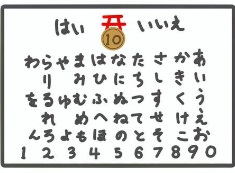 はい 10 いいえ
あいうえお
かきくけこ
さしすせそ
たちつてと
なにぬねの
はひふへほ
まみむめも
やゆよ
らりるれろ
わをん
1 2 3 4 5 6 7 8 9 0